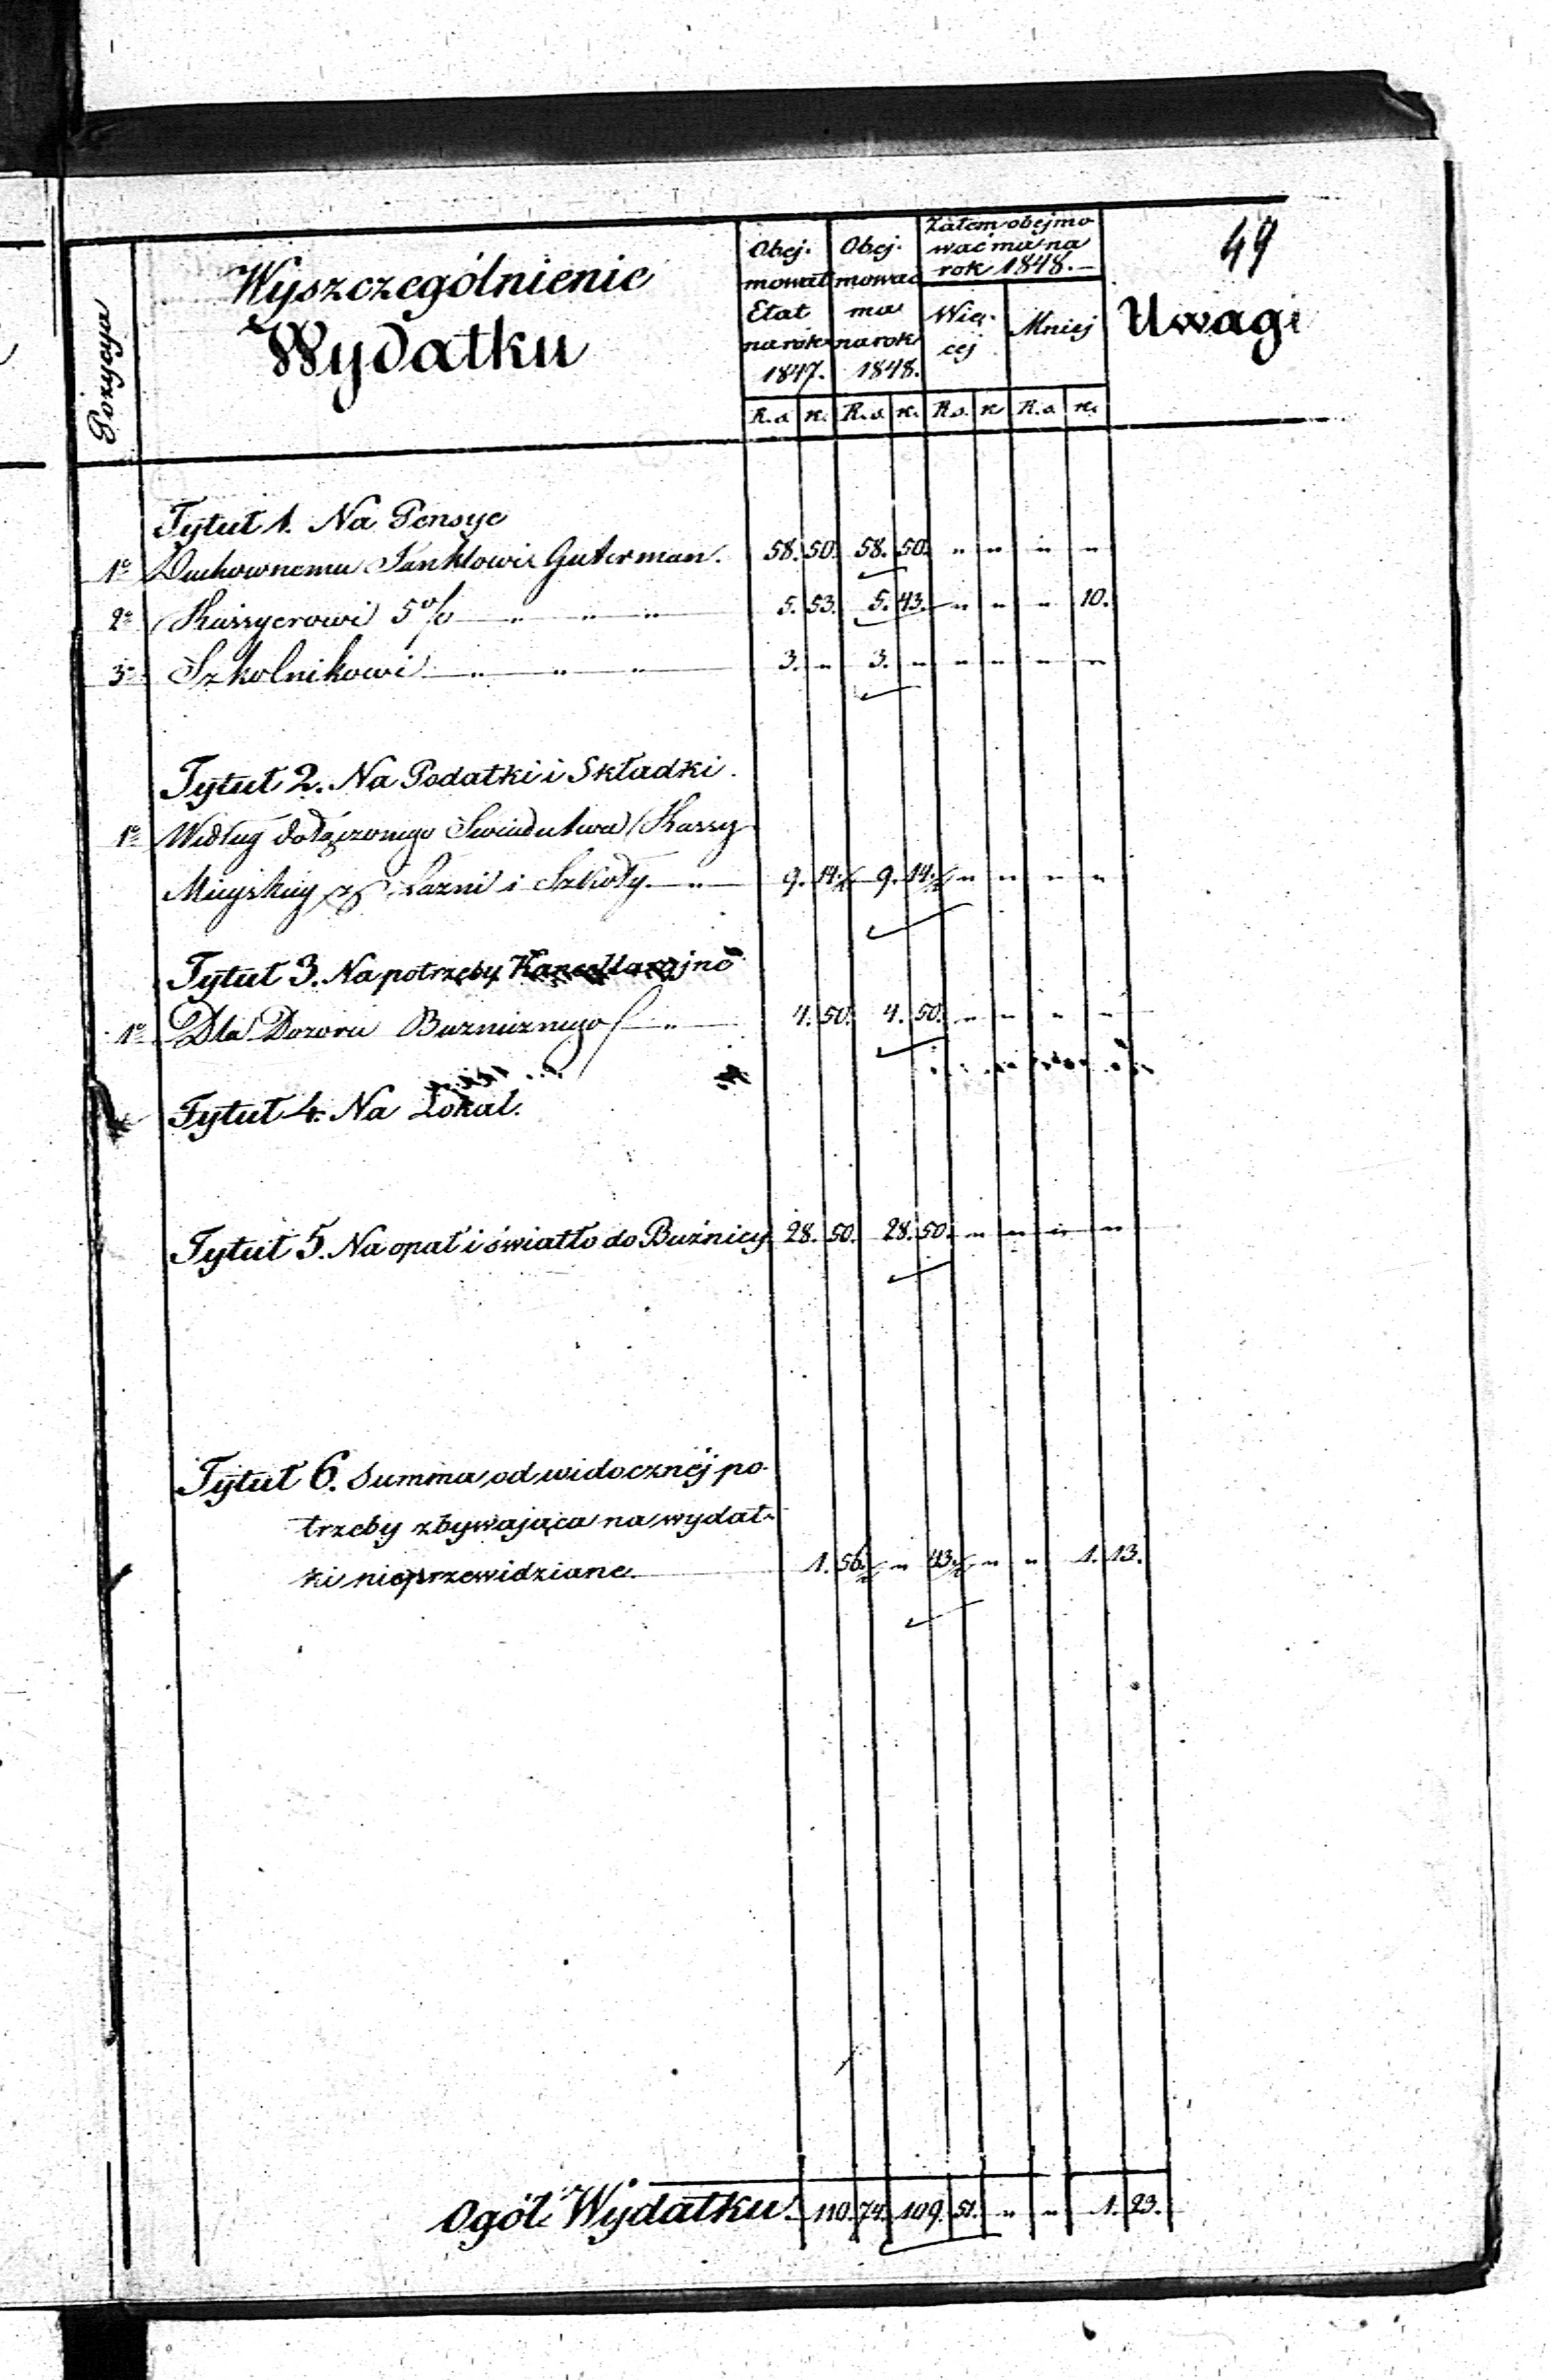 49
Pozycya
Wyszczególnienie
Wydatku
Obej-
mował
Etat
na rok
1847.
Obej-
mować
ma
na rok
1848.
Zatem obejmo
wać ma na
rok 1848.
Wię-
cej
Mniej
Uwagi
R.s. k. R.s. k. R.s. k. R.s. k.
Tytuł 1. Na Pensye
1o Duchownemu Jankłowi Guterman. 58. 50. 58. 50. " " " "
2o Kassyerowi 5% " " " 5. 53. 5. 43. " " " 10.
3o Szkolnikowi " " " 3. " 3. " " " " "
Tytuł 2. Na Podatki i Składki.
1o Według dołączonego Swiadectwa Kassy
Mieyskiey z Łazni i Szkoły " 9. 14½ 9. 14½ " " " "
Tytuł 3. Na potrzeby Kancellaryjne
1o Dla Dozoru Bużniznego " 4. 50. 4. 50. " " " "
Tytuł 4. Na Lokal.
Tytuł 5. Na opał i światło do Bużnicy 28. 50. 28. 50. " " " "
Tytuł 6. Summa od widocznéj po-
trzeby zbywająca na wydat-
ki nieprzewidziane. 1. 56½ " 43½ " " 1. 13.
Ogół Wydatku. 110. 74. 109. 51. " " 1. 23.